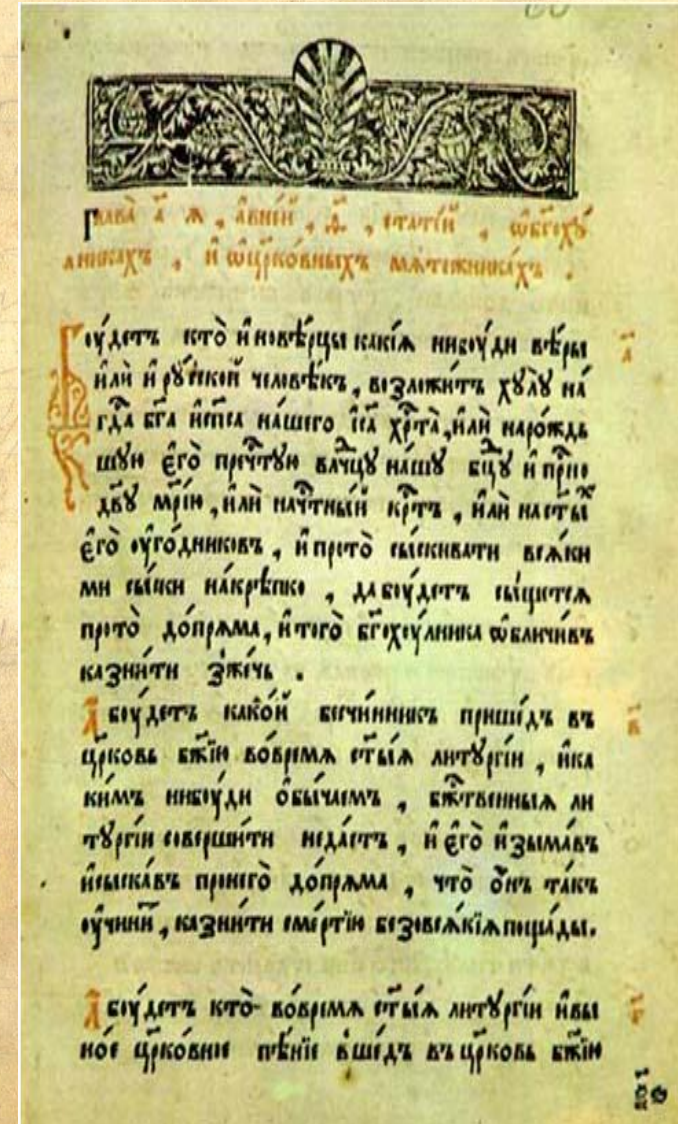 Глава̀ а҃ я , а҆вне́й , ѳ҃ , стате́й , ѡ҆бг҃оху́
лникахъ , и҆ ѡ҆цр҃ко́вныхъ мѧте́жникахъ .
Бꙋ́детъ кто̀ и҆новѣ́рцы какі́ѧ нибꙋ́ди вѣ́ры
и҆лѝ и҆ рꙋ́ской человѣ́къ , возложи́тъ хꙋлꙋ̀ на́
гд҇а бг҃а и҆сп҃са на́шего і҆с҃а хрт҇а̀ , и҆лѝ наро́ждь
шꙋю є҆го̀ преч҇тꙋю влⷣчцꙋ на́шꙋ бц҃ꙋ и҆ прн҇о
дв҃ꙋ мр҃і́ю , и҆лѝ на ч҇тны́й крт҇ъ , и҆лѝ на ст҃ы́х
є҆го̀ ᲂу҆го́дниковъ , и҆ про то̀ сы́скивати всѧ́ки
ми сы́ски на́крѣпко , да бꙋ́детъ сы́щетсѧ
про то̀ до́прѧма , и҆ того̀ бг҃охꙋ́лника ѡ҆бличи́въ
казни́ти зже́чь .
А҆ бꙋ́детъ како́й безчи́нникъ прише́дъ въ
цр҃ковь бж҃їю во́времѧ ст҃ы́ѧ литꙋргі́и , и҆ка
ки́мъ нибꙋ́ди ѻ҆бы́чаемъ , бжⷭ҇твенныѧ ли
тꙋргі́и соверши́ти неда́стъ , и҆ є҆го̀ и҆зыма́въ
и҆сыска́въ пронего̀ до́прѧма , что̀ ѻ҆́нъ та́къ
ᲂу҆чини́т , казни́ти сме́ртїю безовсѧ́кїѧ поща́ды .
А҆ бꙋ́детъ кто̀ во́времѧ ст҃ы́ѧ литꙋргі́и и҆вы
но́е цр҃ко́вное пѣ́нїе вше́дъ въ цр҃ковь бж҃їю